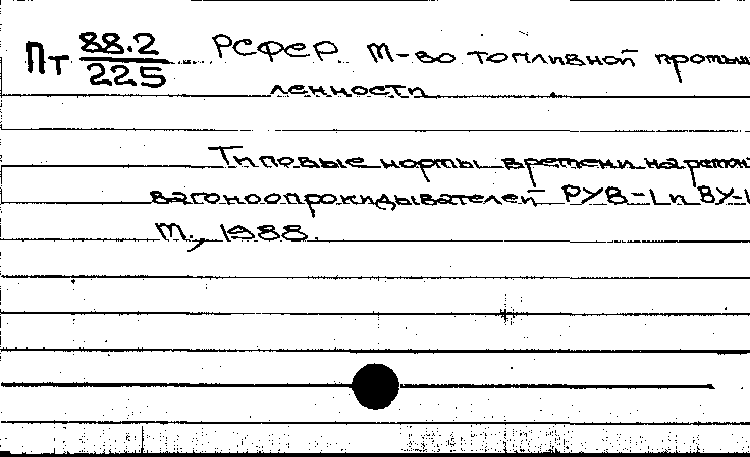 Пт 88.2/225 РСФСР. М-во топливной промыш
ленности
Типовые нормы времени на ремон
вагоноопрокидывателей РУВ-1 и ВУ-1
М., 1988.